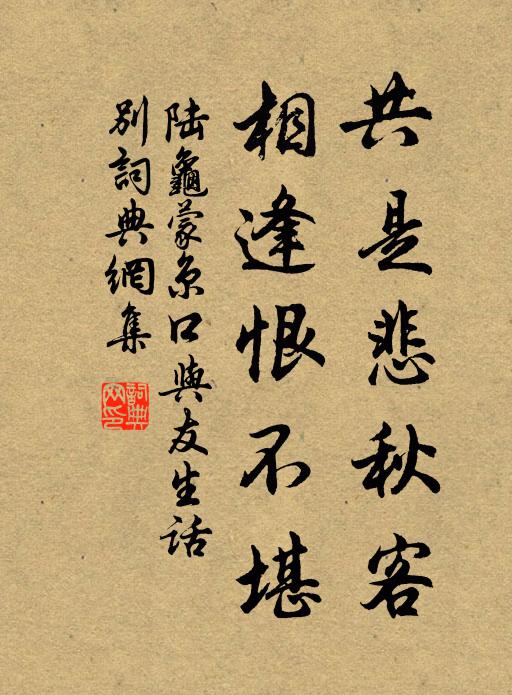 共是悲秋客
相逢恨不堪
陆龜蒙京口與友生話
别詞典網集
詞典
网印